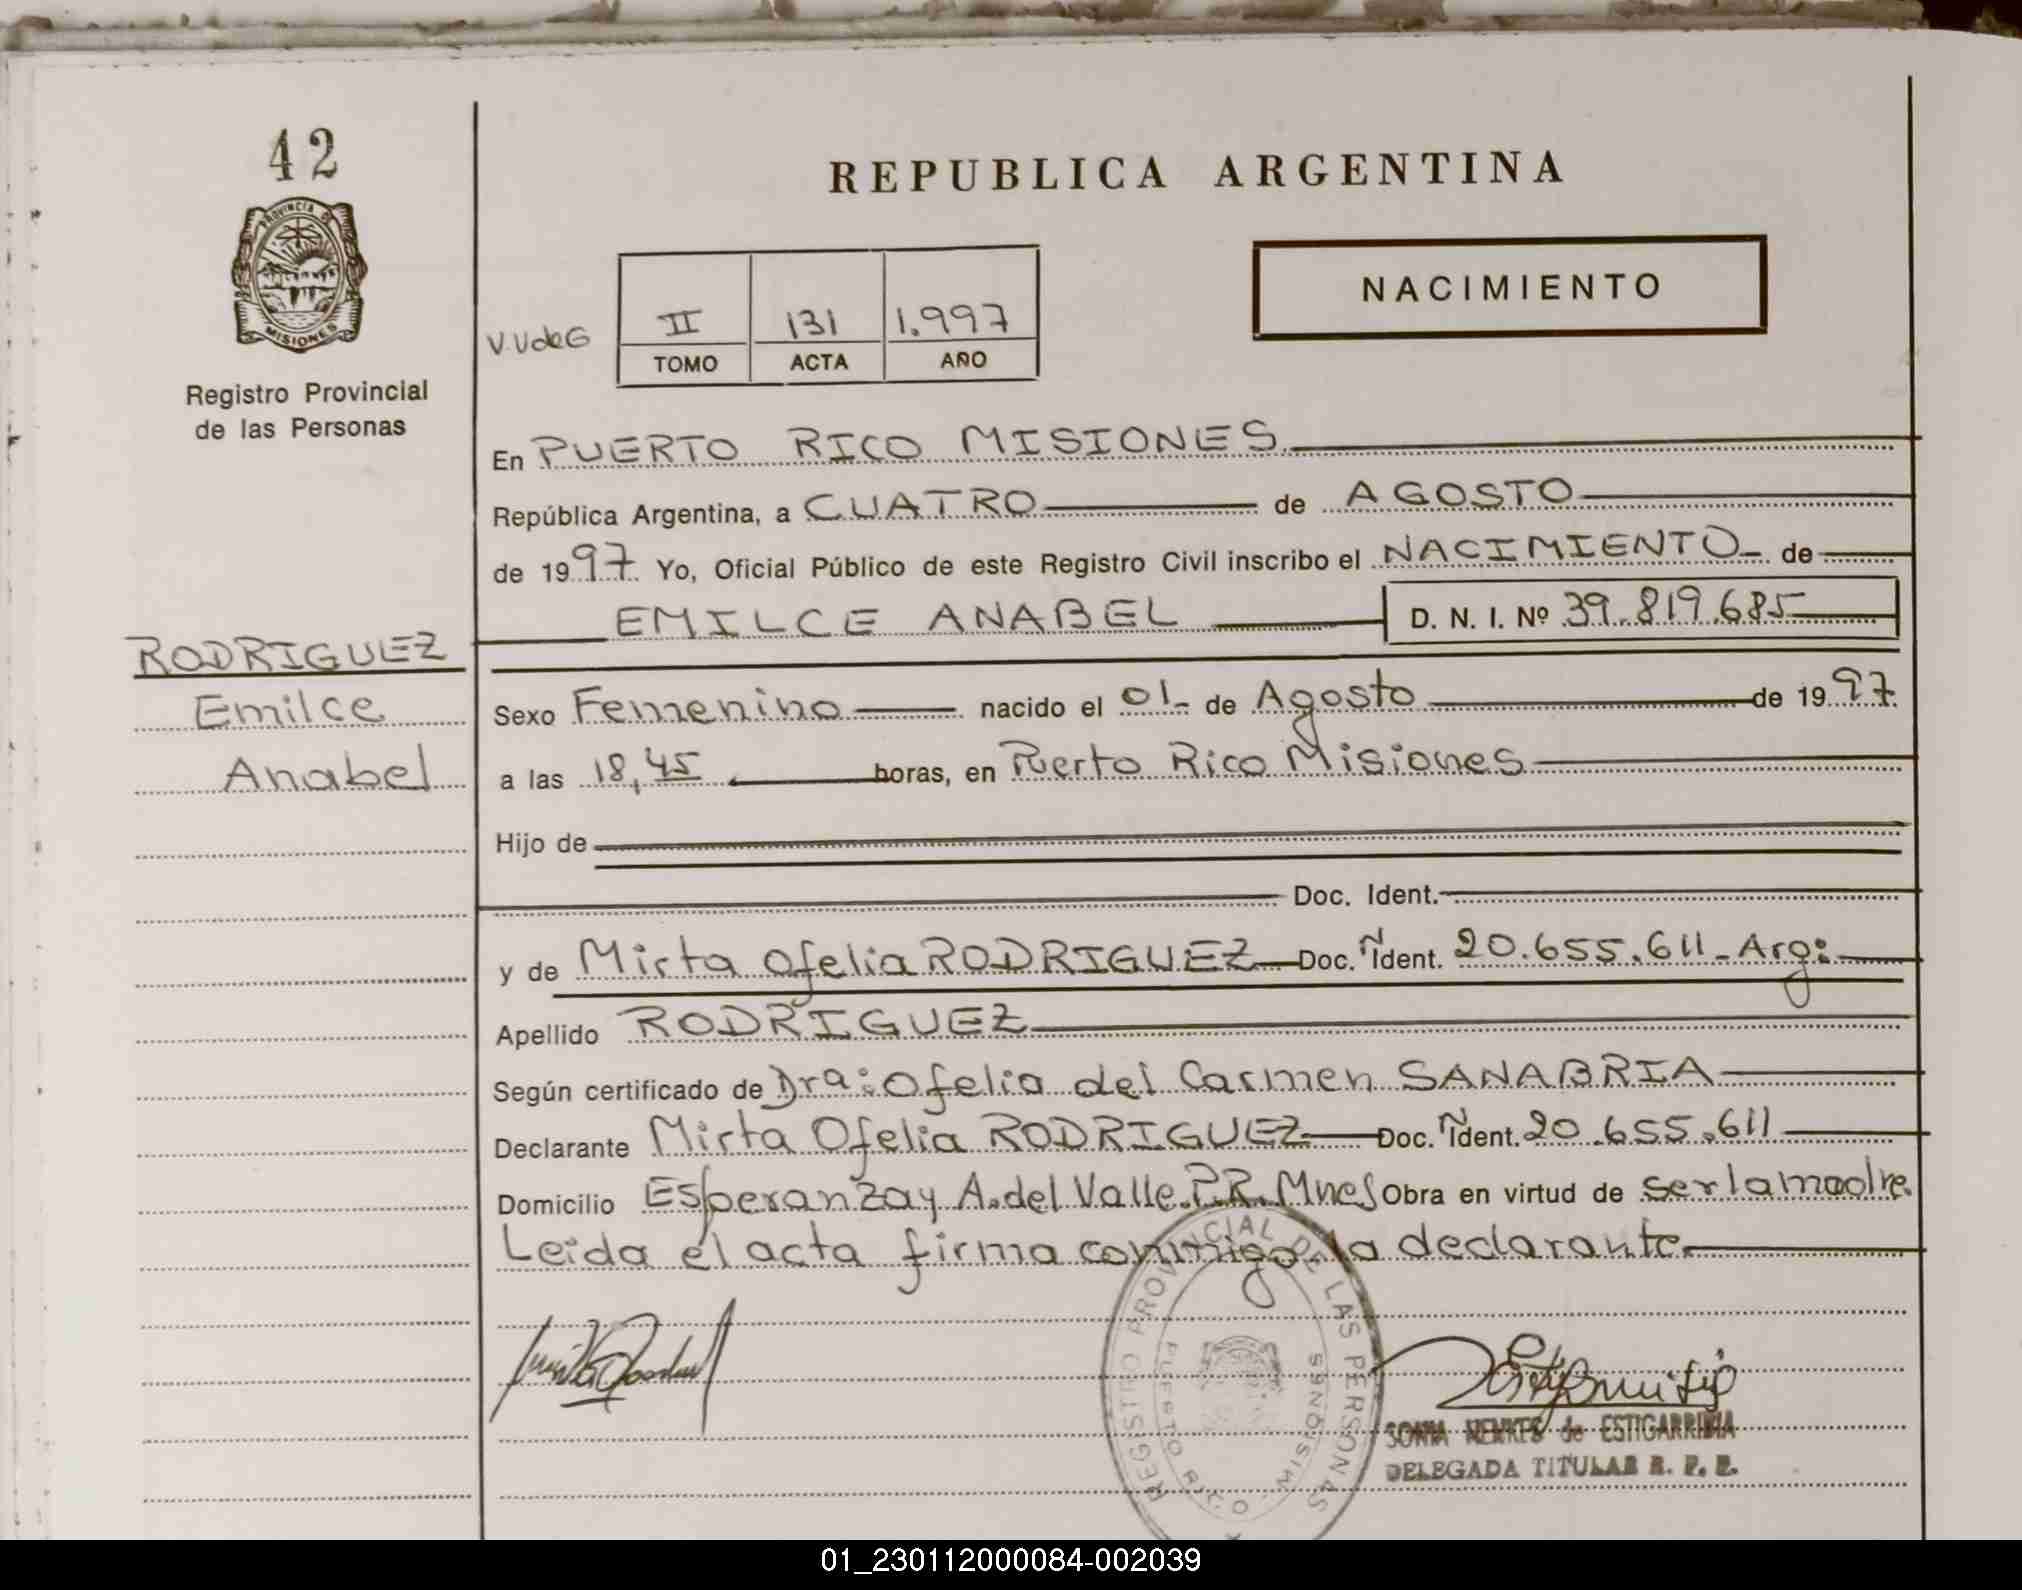 42
PROVINCIA DE
MISIONES
Registro Provincial
de las Personas
RODRIGUEZ
Emilce
Anabel
REPUBLICA ARGENTINA
NACIMIENTO
V.VdeG
II 131 1.997
TOMO ACTA AÑO
En PUERTO RICO MISIONES
República Argentina, a CUATRO de AGOSTO
de 1997. Yo, Oficial Público de este Registro Civil inscribo el NACIMIENTO de
EMILCE ANABEL D. N. I. Nº 39.819.685
Sexo Femenino nacido el 01 de Agosto de 1997.
a las 18,45 horas, en Puerto Rico Misiones
Hijo de
Doc. Ident.
y de Mirta Ofelia RODRIGUEZ Doc. Ñ Ident. 20.655.611 - Arg:
Apellido RODRIGUEZ
Según certificado de Dra: Ofelia del Carmen SANABRIA
Declarante Mirta Ofelia RODRIGUEZ Doc. Ñ Ident. 20.655.611
Domicilio Esperanza y A. del Valle. P.R. Mnes Obra en virtud de ser la madre.
Leida el acta firma conmigo la declarante.
REGISTRO PROVINCIAL DE LAS PERSONAS
PUERTO RICO - MISIONES
SONIA NENKES de ESTIGARRIBIA
DELEGADA TITULAR R. P. P.
01_230112000084-002039